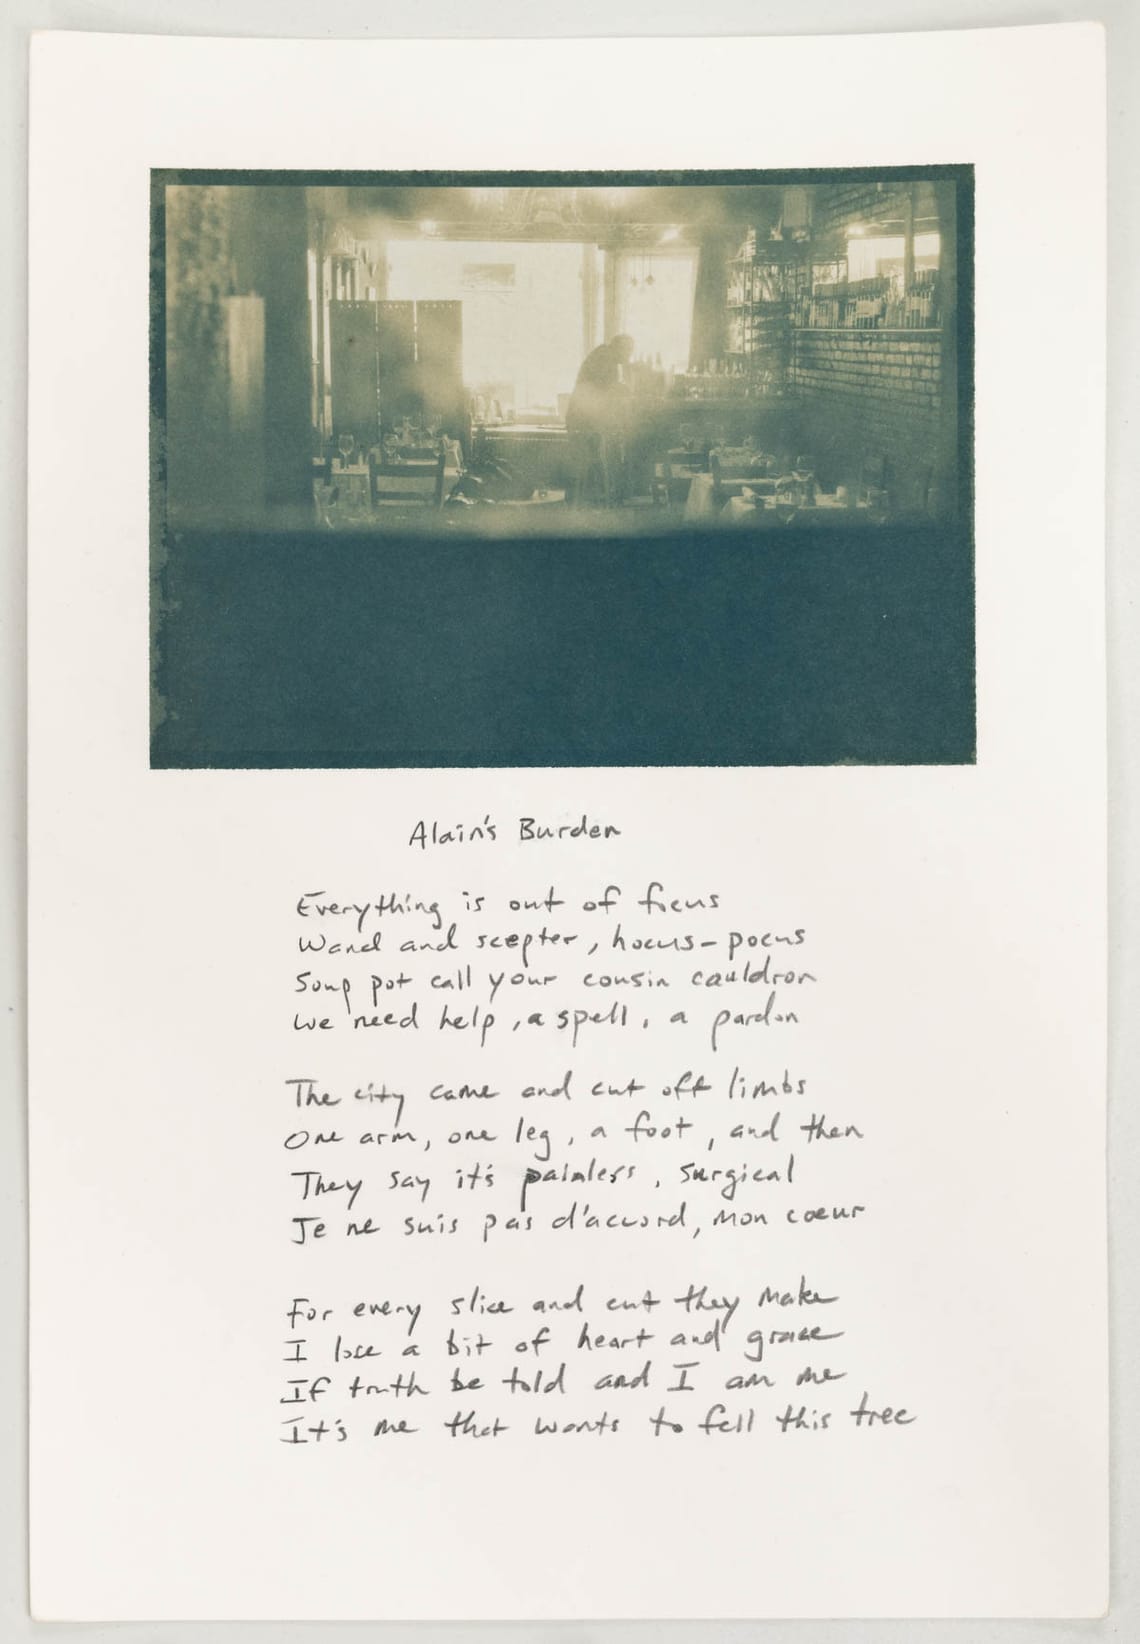 Alain's Burden
Everything is out of focus
Wand and scepter, hocus-pocus
Soup pot call your cousin cauldron
We need help, a spell, a pardon
The city came and cut off limbs
One arm, one leg, a foot, and then
They say it's painless, surgical
Je ne suis pas d'accord, mon coeur
For every slice and cut they make
I lose a bit of heart and grace
If truth be told and I am me
It's me that wants to fell this tree